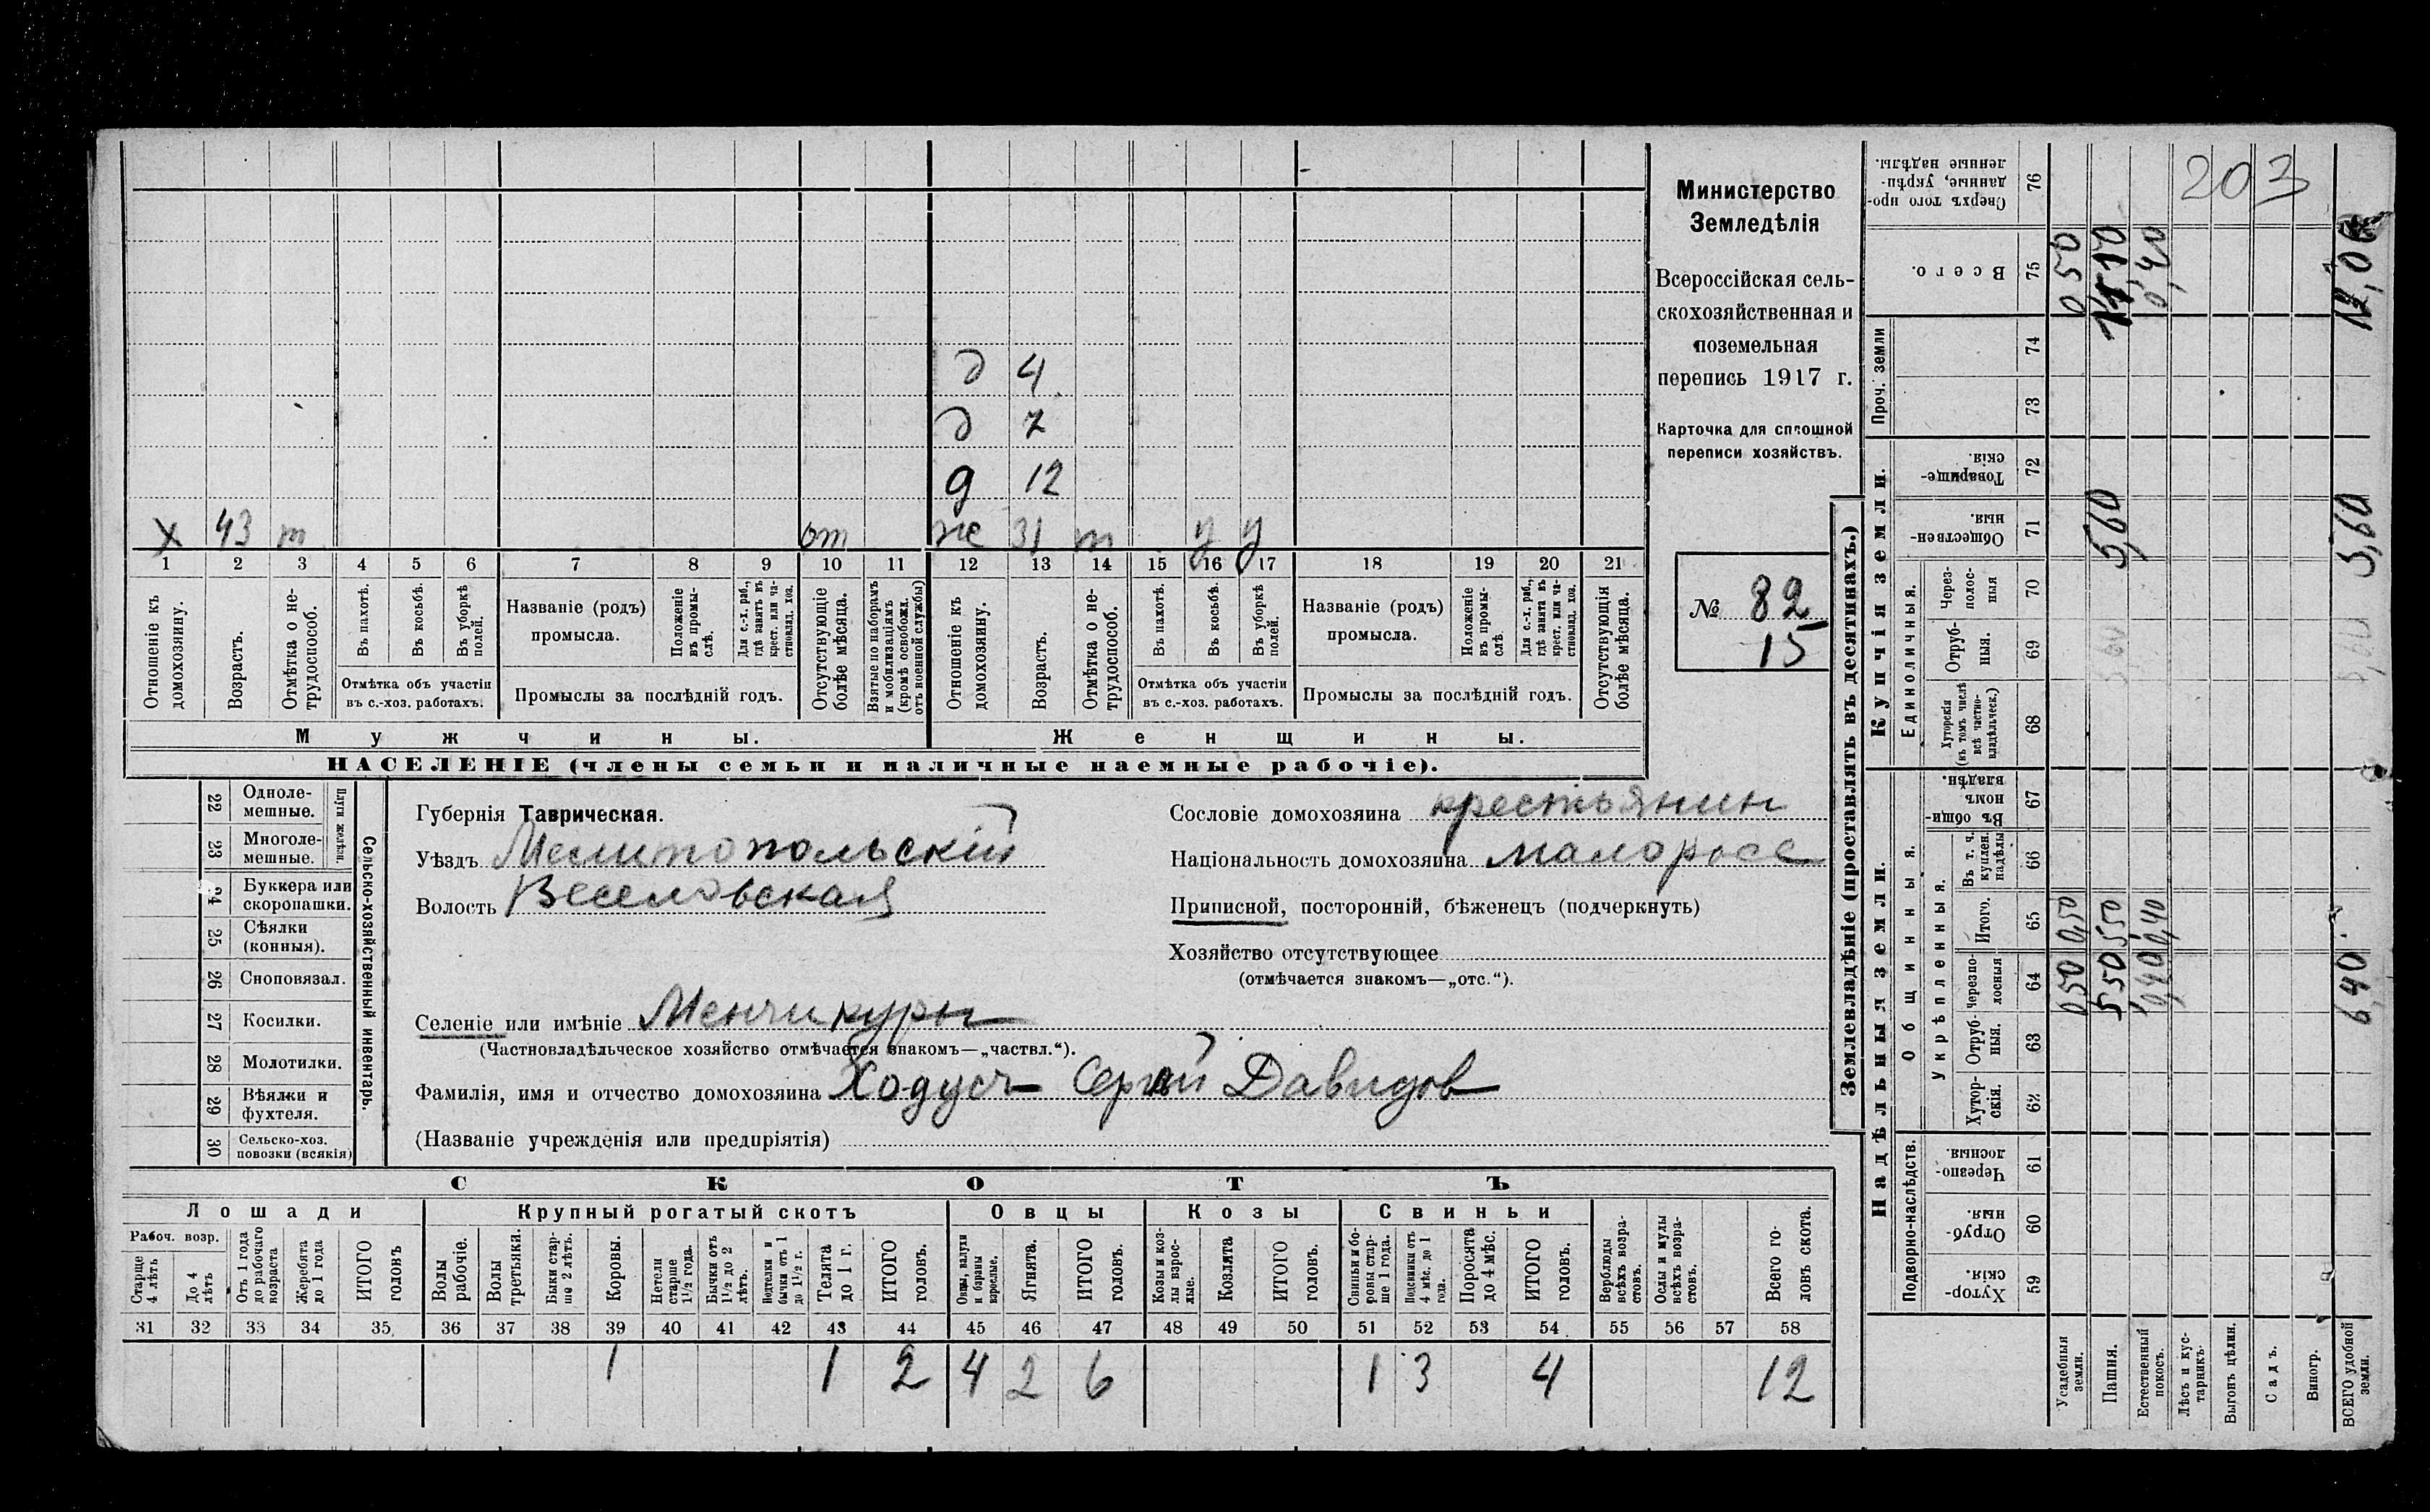 Министерство
Земледѣлія
Всероссійская сель-
скохозяйственная и
поземельная
перепись 1917 г.
Карточка для сплошной
переписи хозяйствъ.
№ 82
15
203
д 4
д 7
д 12
х 43 т от же 31 т у у
1 2 3 4 5 6 7 8 9 10 11 12 13 14 15 16 17 18 19 20 21
Отношеніе къ домохозяину.
Возрастъ.
Отмѣтка о не-трудоспособ.
Въ пахотѣ.
Въ косьбѣ.
Въ уборкѣ полей.
Отмѣтка объ участіи
въ с.-хоз. работахъ.
Названіе (родъ)
промысла.
Положеніе въ промы-слѣ.
Для с.-х. раб., гдѣ занятъ въ крест. или ча-стновлад. хоз.
Промыслы за послѣдній годъ.
Отсутствующіе болѣе мѣсяца.
Взятые по наборамъ и мобилизаціямъ (кромѣ освобожд. отъ военной службы)
Отношеніе къ домохозяину.
Возрастъ.
Отмѣтка о не-трудоспособ.
Въ пахотѣ.
Въ косьбѣ.
Въ уборкѣ полей.
Отмѣтка объ участіи
въ с.-хоз. работахъ.
Названіе (родъ)
промысла.
Положеніе въ промы-слѣ.
Для с.-х. раб., гдѣ занята въ крест. или ча-стновлад. хоз.
Промыслы за послѣдній годъ.
Отсутствующія болѣе мѣсяца.
Мужчины. Женщины.
НАСЕЛЕНІЕ (члены семьи и наличные наемные рабочіе).
Сельско-хозяйственный инвентарь.
22 Однолемешные.
23 Многолемешные.
24 Буккера или скоропашки.
25 Сѣялки (конныя).
26 Сноповязал.
27 Косилки.
28 Молотилки.
29 Вѣялки и фухтеля.
30 Сельско-хоз. повозки (всякія)
Губернія Таврическая.
Уѣздъ Мелитопольскій
Волость Веселовская
Сословіе домохозяина крестьянин
Національность домохозяина малоросс
Приписной, посторонній, бѣженецъ (подчеркнуть)
Хозяйство отсутствующее
(отмѣчается знакомъ—„отс.“).
Селеніе или имѣніе Менчикуры
(Частновладѣльческое хозяйство отмѣчается знакомъ—„частвл.“).
Фамилія, имя и отчество домохозяина Ходусъ Сергѣй Давидов
(Названіе учрежденія или предпріятія)
СКОТЪ
Лошади Крупный рогатый скотъ Овцы Козы Свиньи
Рабоч. возр.
Старше 4 лѣтъ
До 4 лѣтъ
Отъ 1 года до рабочаго возраста
Жеребята до 1 года
ИТОГО головъ
Волы рабочіе.
Волы третьяки.
Быки стар-ше 2 лѣтъ.
Коровы.
Нетели старше 1½ года.
Бычки отъ 1½ до 2 лѣтъ.
Нетелки и бычки отъ 1 до 1½ г.
Телята до 1 г.
ИТОГО головъ.
Овцы, валухи и бараны взрослые.
Ягнята.
ИТОГО головъ.
Козы и коз-лы взрос-лые.
Козлята
ИТОГО головъ.
Свиньи и бо-ровы стар-ше 1 года.
Подсвинки отъ 4 мѣс. до 1 года.
Поросята до 4 мѣс.
ИТОГО головъ.
Верблюды всѣхъ возра-стовъ.
Ослы и мулы всѣхъ возра-стовъ.
Всего го-ловъ скота.
31 32 33 34 35 36 37 38 39 40 41 42 43 44 45 46 47 48 49 50 51 52 53 54 55 56 57 58
1 1 2 4 2 6 1 3 4 12
Землевладѣніе (проставлять въ десятинахъ.)
Надѣльныя земли. Купчія земли. Проч. земли
Подворно-наслѣдств. Общинныя. Единоличныя.
Укрѣпленныя.
Хутор-скія. 59
Отруб-ныя. 60
Черезпо-лосныя. 61
Хутор-скія. 62
Отруб-ныя. 63
черезпо-лосныя 64
Итого. 65
Въ т. ч. куплен. надѣлы 66
Въ общин-номъ владѣн. 67
Хуторскія (въ томъ числѣ всѣ частно-владѣльческ.) 68
Отруб-ныя. 69
Через-полос-ныя 70
Обществен-ныя. 71
Товарище-скія. 72
73
74
Всего. 75
Сверхъ того про-данные, укрѣп-ленные надѣлы. 76
Усадебныя земли. 0,50 0,50 0,50
Пашня. 5,50 5,50 5,60
Естественный покосъ. 0,40 0,40 0,40
Лѣсъ и кус-тарникъ.
Выгонъ цѣлин.
Садъ.
Виногр.
ВСЕГО удобной земли. 6,40 5,60